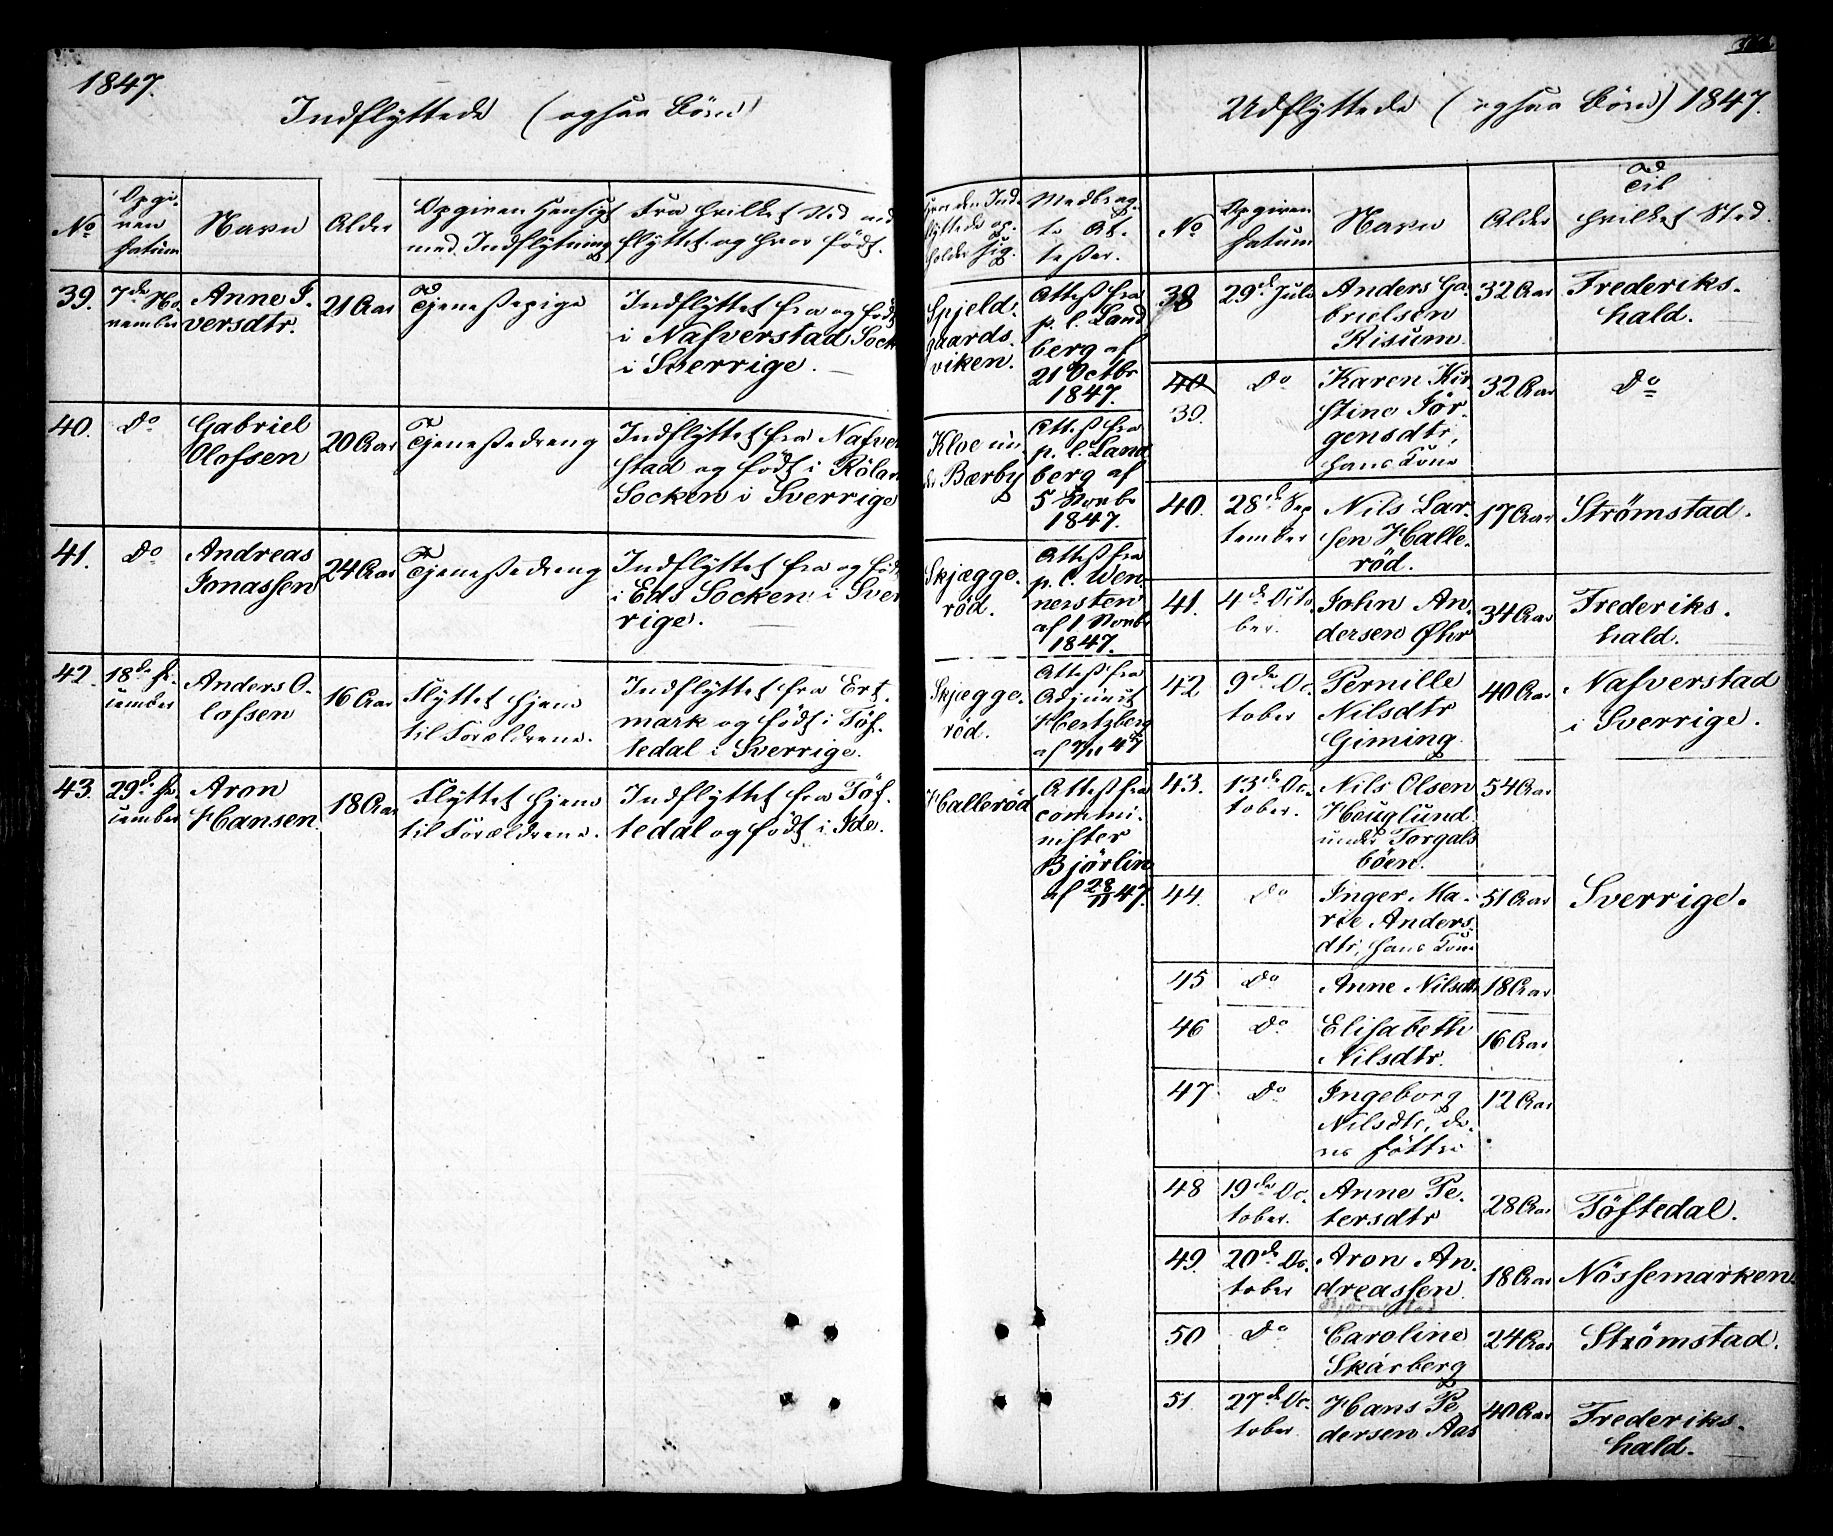 1847.
Indflyttede (ogsaa Börn)
No
Opgi-
ven
Datum
Navn
Alder
Opgiven Hensigt
med Indflytning
Fra hvilket Sted ind
flyttet og hvor födt.
Hvor den Ind-
flyttede op-
holder sig.
Medbrag-
te At-
tester.
39.
7de No-
vember
Anne I-
versdtr.
21 Aar
Tjenestepige
Indflyttet fra og födt
i Nafverstad Sock
i Sverrige.
Spjelds-
gaards-
viken.
Attest fra
p. l. Land
berg af
21 Octbr
1847.
40.
Do
Gabriel
Olofsen
20 Aar
Tjenestedreng
Indflyttet fra Nafver
stad og födt i Rölan
Socken i Sverrige
Kloe un
der Bærby
Attest fra
p. l. Land
berg af
5 Novbr
1847.
41.
Do
Andreas
Jonassen
24 Aar
Tjenestedreng
Indflyttet fra og födt
i Eds Socken i Sver
rige.
Skjægge-
röd.
Attest fra
p. C. Wen-
nersten
af 1 Novbr
1847.
42.
18de De-
cember
Anders O-
lofsen
16 Aar
Flyttet hjem
til Forældrene.
Indflyttet fra Ert-
mark og födt i Töf-
tedal i Sverrige.
Skjægge-
röd.
Attest fra
Adjunct
Hertzberg
af 7/11 47
43.
29de De-
cember
Aron
Hansen
18 Aar
Flyttet hjem
til Forældrene.
Indflyttet fra Töf-
tedal og födt i Ide.
Halleröd
Attest fra
commi-
nister
Björlin
af 28/11 47.
Udflyttede (ogsaa Börn) 1847.
No
Opgiven
Datum
Navn
Alder
Til
hvilket Sted.
38
29de Juli
Anders Ga-
brielsen
Risum
32 Aar
Frederiks-
hald.
40
39.
Do
Karen Kir-
stine Jör-
gensdtr,
hans Kone
32 Aar
Do
40.
28de Sep
tember
Nils Lar-
sen Halle-
röd.
17 Aar
Strömstad.
41.
4de Octo
ber.
John An-
dersen Øhr
34 Aar
Frederiks-
hald.
42
9de Oc-
tober
Pernille
Nilsdtr
Giming
40 Aar
Nafverstad
i Sverrige.
43.
13de Oc-
tober.
Nils Olsen
Houglund
under Torgals
böen.
54 Aar
44.
Do
Inger Ma-
rie Anders-
dtr, hans Kone
51 Aar
Sverrige.
45
Do
Anne Nilsdtr
18 Aar
46
Do
Elisabeth
Nilsdtr.
16 Aar
47
Do
Ingeborg
Nilsdtr, de-
res Döttre
12 Aar
48
19de Oc-
tober.
Anne Pe-
tersdtr
28 Aar
Töftedal.
49.
20de Oc-
tober
Aron An-
dreassen
18 Aar
Nössemarken.
50
Do
Caroline
Skárberg
24 Aar
Strömstad.
51.
27de Oc-
tober
Hans Pe
dersen Aas
40 Aar
Frederiks-
hald.